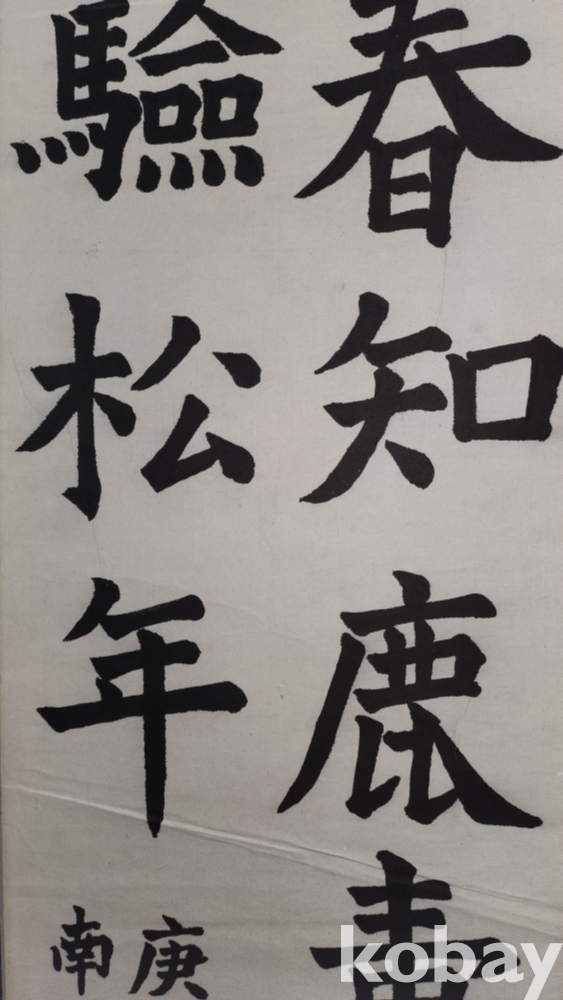 春知鹿
驗松年
庚
南
kobay